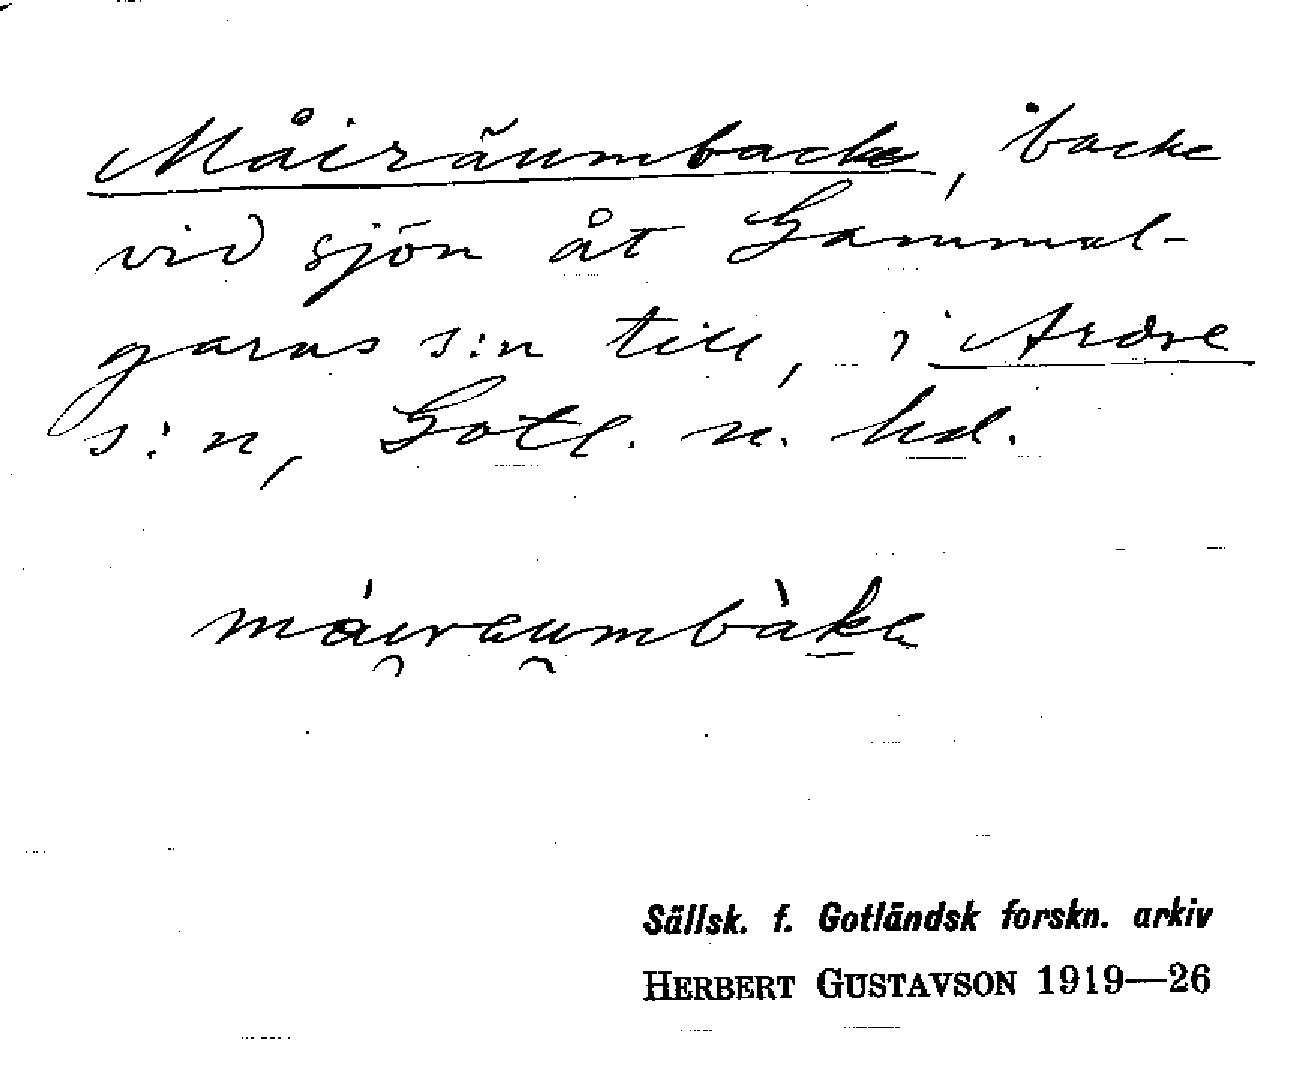 Måiräumbacke, backe
vid sjön åt Gammal-
garns s:n till, i Ardre
s:n, Gotl. n. hd.
máiraumbàka
Sällsk. f. Gotländsk forskn. arkiv
HERBERT GUSTAVSON 1919—26